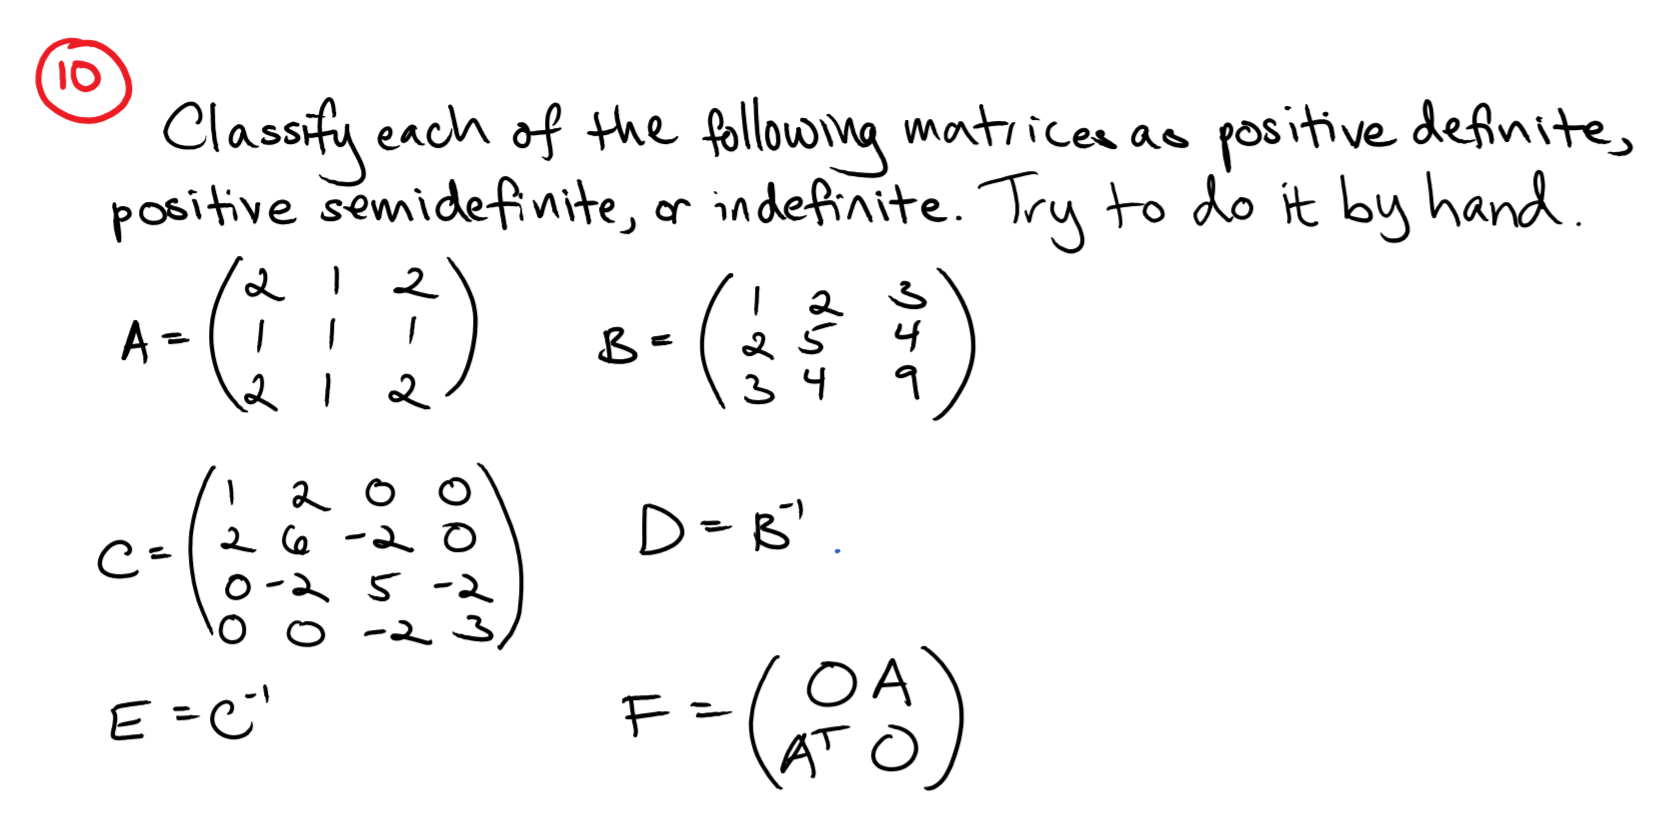 10
Classify each of the following matrices as positive definite,
positive semidefinite, or indefinite. Try to do it by hand.
A = (2 1 2
1 1 1
2 1 2)
B = (1 2 3
2 5 4
3 4 9)
C = (1 2 0 0
2 6 -2 0
0 -2 5 -2
0 0 -2 3)
D = B⁻¹.
E = C⁻¹
F = (O A
Aᵀ O)